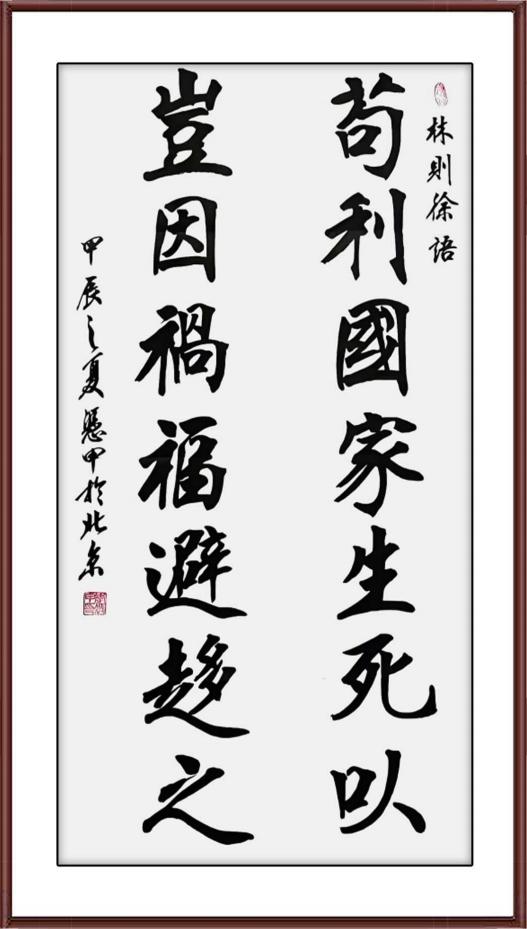 林則徐語
苟利國家生死以
豈因禍福避趍之
甲辰之夏憑甲於北京